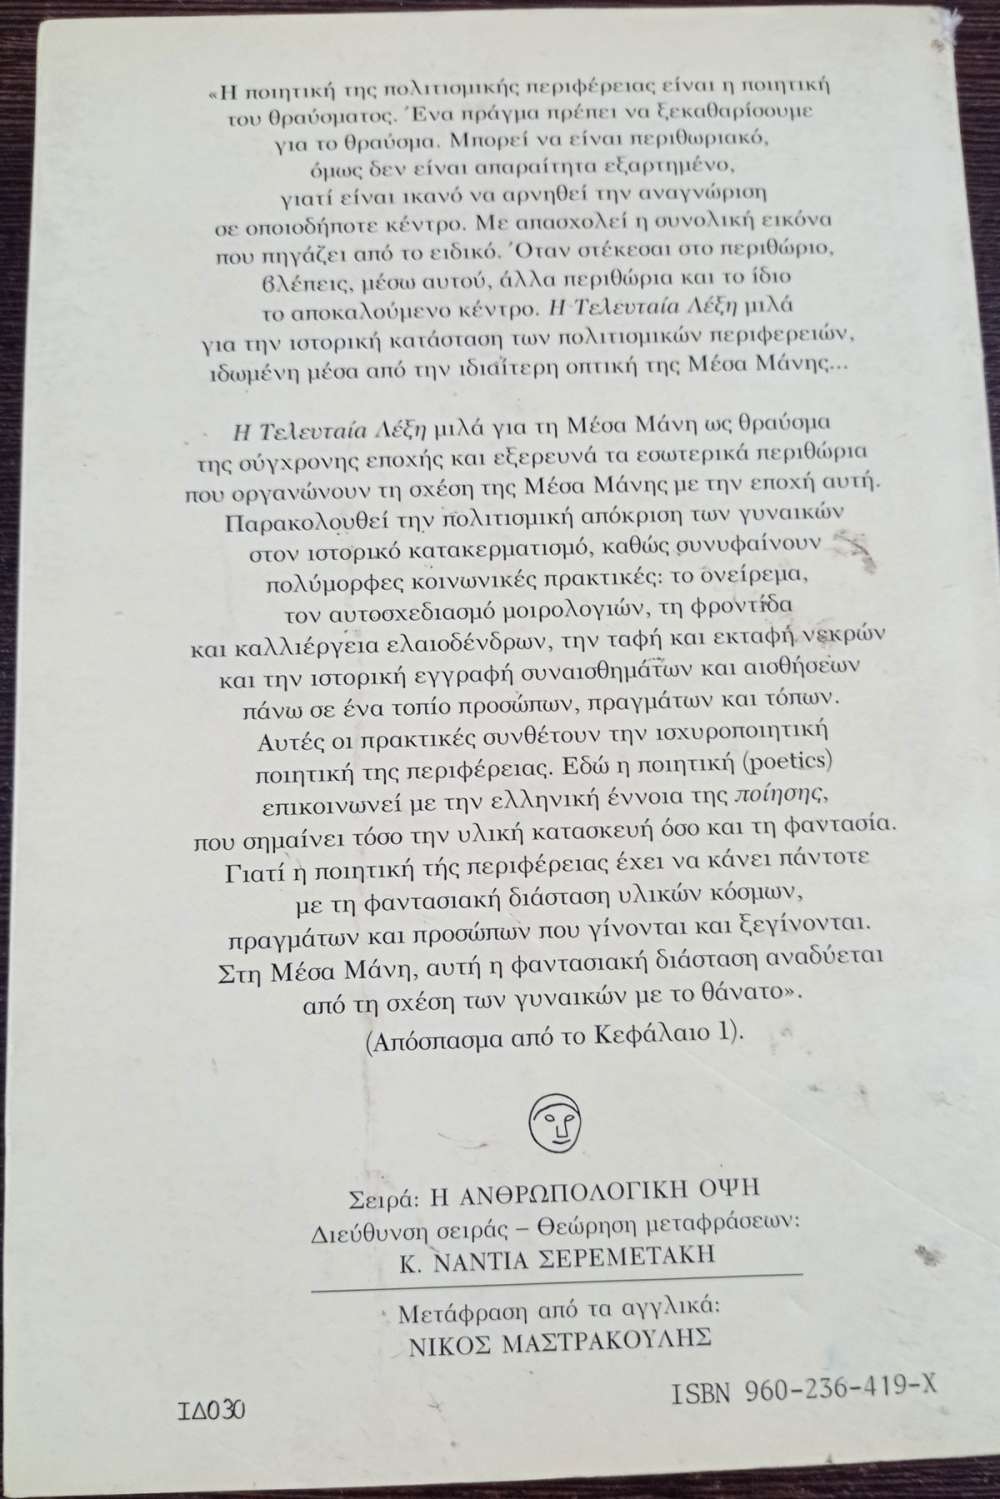 «Η ποιητική της πολιτισμικής περιφέρειας είναι η ποιητική
του θραύσματος. Ένα πράγμα πρέπει να ξεκαθαρίσουμε
για το θραύσμα. Μπορεί να είναι περιθωριακό,
όμως δεν είναι απαραίτητα εξαρτημένο,
γιατί είναι ικανό να αρνηθεί την αναγνώριση
σε οποιοδήποτε κέντρο. Με απασχολεί η συνολική εικόνα
που πηγάζει από το ειδικό. Όταν στέκεσαι στο περιθώριο,
βλέπεις, μέσω αυτού, άλλα περιθώρια και το ίδιο
το αποκαλούμενο κέντρο. Η Τελευταία Λέξη μιλά
για την ιστορική κατάσταση των πολιτισμικών περιφερειών,
ιδωμένη μέσα από την ιδιαίτερη οπτική της Μέσα Μάνης...
Η Τελευταία Λέξη μιλά για τη Μέσα Μάνη ως θραύσμα
της σύγχρονης εποχής και εξερευνά τα εσωτερικά περιθώρια
που οργανώνουν τη σχέση της Μέσα Μάνης με την εποχή αυτή.
Παρακολουθεί την πολιτισμική απόκριση των γυναικών
στον ιστορικό κατακερματισμό, καθώς συνυφαίνουν
πολύμορφες κοινωνικές πρακτικές: το ονείρεμα,
τον αυτοσχεδιασμό μοιρολογιών, τη φροντίδα
και καλλιέργεια ελαιοδένδρων, την ταφή και εκταφή νεκρών
και την ιστορική εγγραφή συναισθημάτων και αισθήσεων
πάνω σε ένα τοπίο προσώπων, πραγμάτων και τόπων.
Αυτές οι πρακτικές συνθέτουν την ισχυροποιητική
ποιητική της περιφέρειας. Εδώ η ποιητική (poetics)
επικοινωνεί με την ελληνική έννοια της ποίησης,
που σημαίνει τόσο την υλική κατασκευή όσο και τη φαντασία.
Γιατί η ποιητική τής περιφέρειας έχει να κάνει πάντοτε
με τη φαντασιακή διάσταση υλικών κόσμων,
πραγμάτων και προσώπων που γίνονται και ξεγίνονται.
Στη Μέσα Μάνη, αυτή η φαντασιακή διάσταση αναδύεται
από τη σχέση των γυναικών με το θάνατο».
(Απόσπασμα από το Κεφάλαιο 1).
Σειρά: Η ΑΝΘΡΩΠΟΛΟΓΙΚΗ ΟΨΗ
Διεύθυνση σειράς – Θεώρηση μεταφράσεων:
Κ. ΝΑΝΤΙΑ ΣΕΡΕΜΕΤΑΚΗ
Μετάφραση από τα αγγλικά:
ΝΙΚΟΣ ΜΑΣΤΡΑΚΟΥΛΗΣ
ISBN 960-236-419-X
ΙΔ030